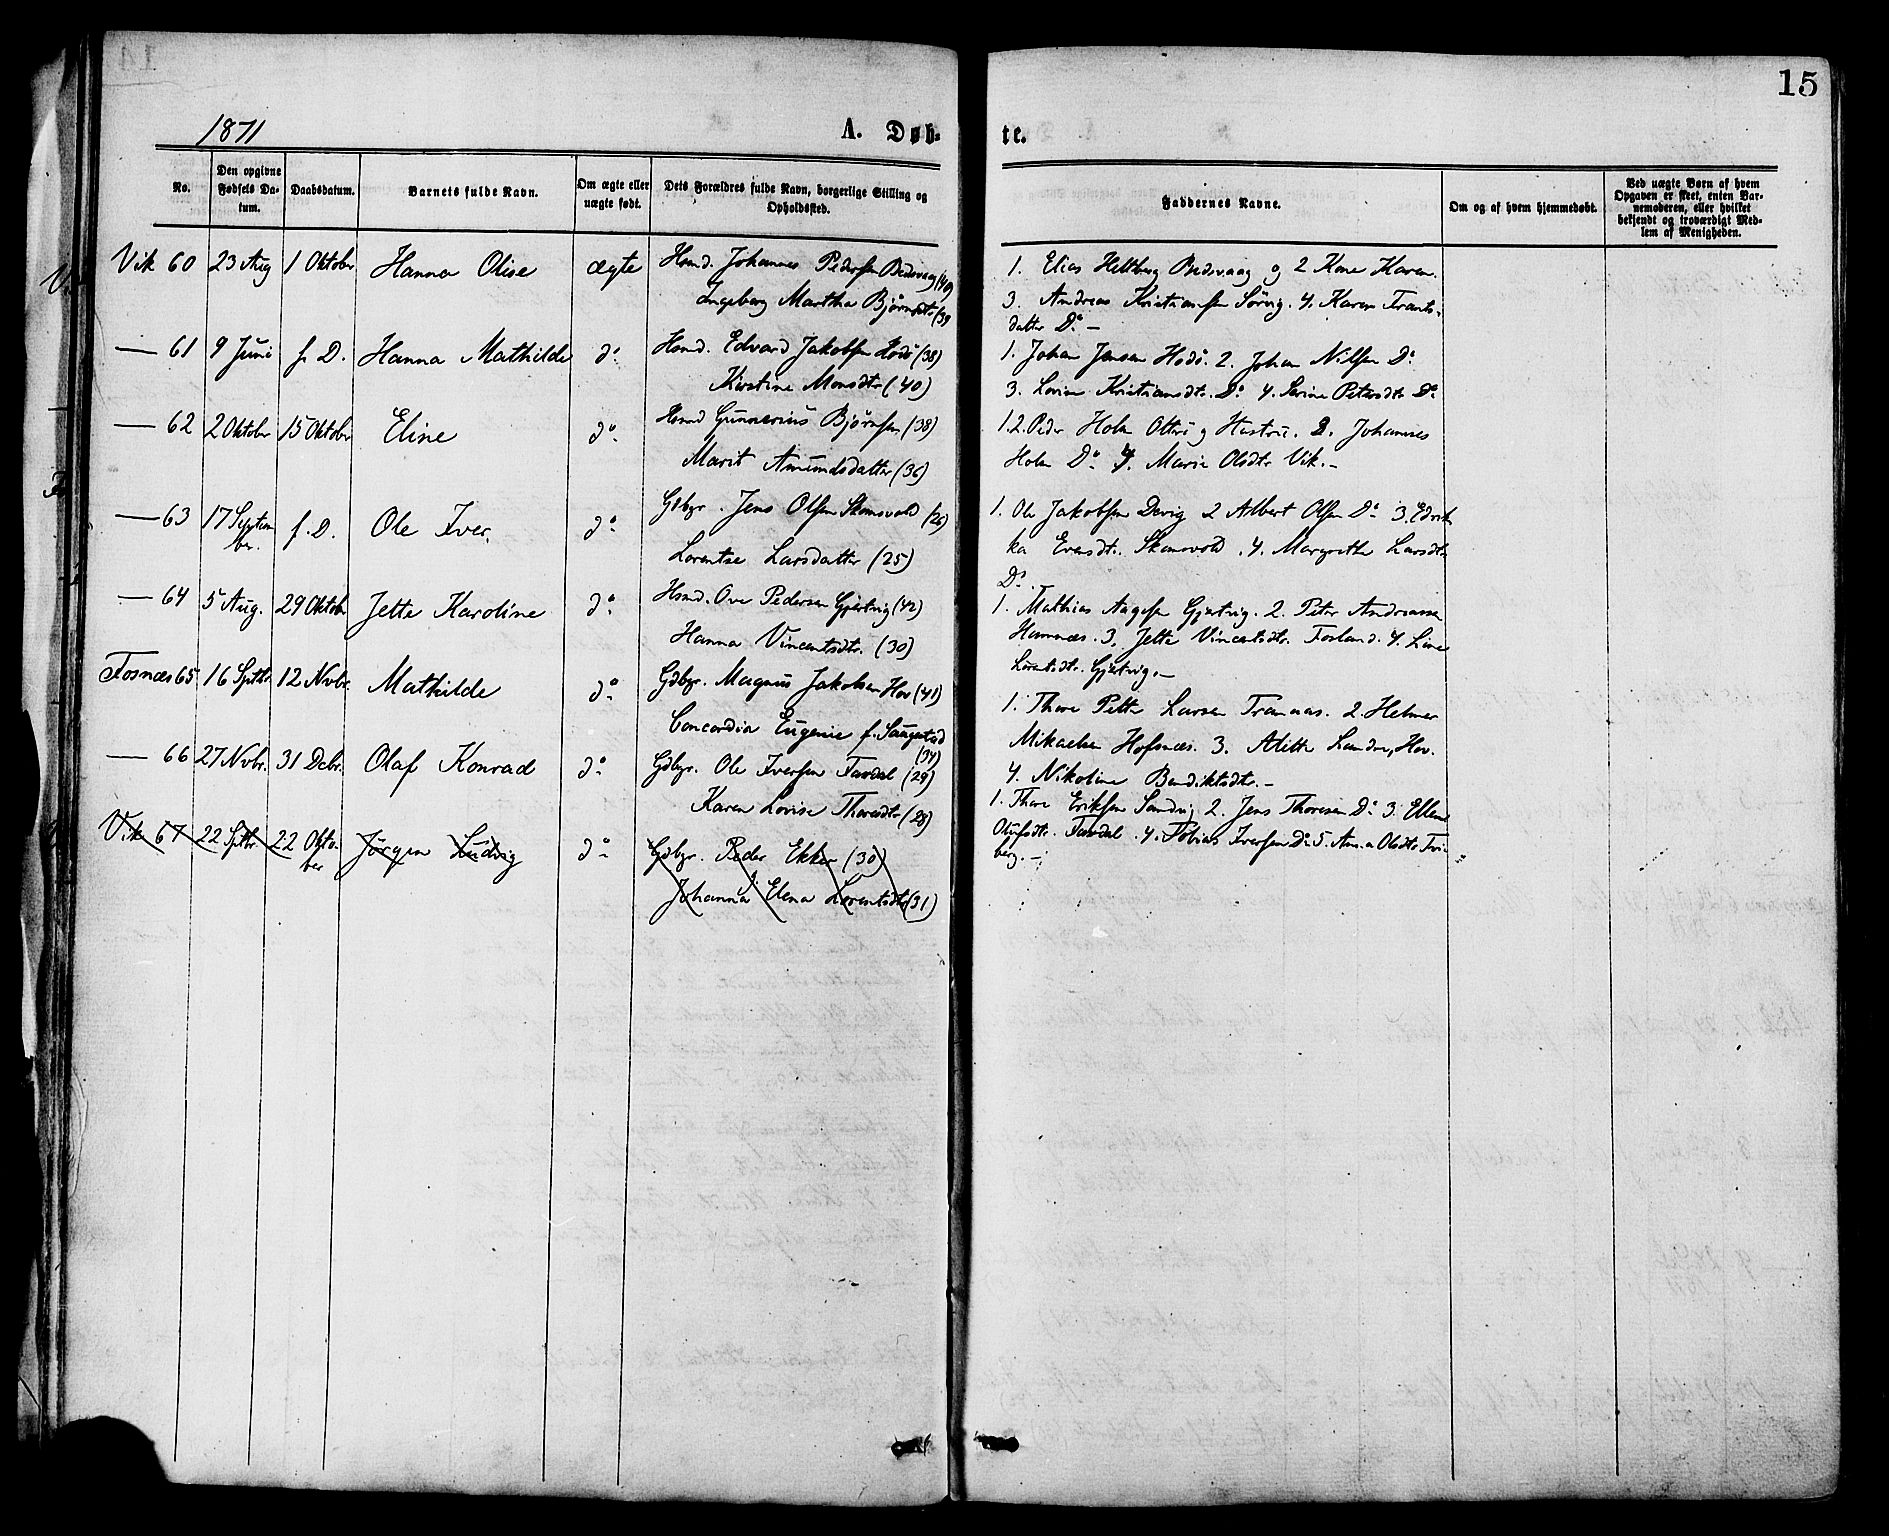 15
1871
A. Døb-
te.
No.
Den opgivne Fødsels Da-
tum.
Daabsdatum.
Barnets fulde Navn.
Om ægte eller
uægte født.
Dets Forældres fulde Navn, borgerlige Stilling og
Opholdssted.
Faddernes Navne.
Om og af hvem hjemmedøbt.
Ved uægte Børn af hvem
Opgaven er skeet, enten Bar-
nemoderen, eller hvilket
bekjendt og troværdigt Med-
lem af Menigheden.
Vik 60 23 Aug 1 Oktober Hanna Olise ægte Hsmd. Johannes Pedersen (40)
Ingeborg Martha Bjørnsdtr (39
1. Elias Heltberg og 2 Kone Karen.
3. Andreas Kristiansen Sørvig. 4. Karen Frants-
datter Do —
— 61 9 Juni f. D. Hanna Mathilde do Hsmd. Edvard Jakobsen Hodö (38)
Kirstine Monsdtr (40)
1. Johan Jensen Hodö. 2. Johan Nilsen Do
3. Lovise Kristiansdtr. Do 4. Serine Petersdtr Do
— 62 2 Oktober 15 Oktober Eline do Hsmd Gunnerius Bjørnsen (38)
Marit Amundsdatter (36)
1.2. Peder Holm Otterö og Hustru. 3. Johannes
Holm Do 4. Marie Olsdtr Vik. —
— 63 17 Septem
ber. f. D. Ole Iver. do Gdbgr. Jens Olsen (26)
Lorentse Larsdatter (25)
1. Ole Jakobsen Devig 2 Albert Olsen Do 3.
ka Evensdtr. 4. Margrethe Larsdtr
Do.
— 64 5 Aug. 29 Oktober Jette Karoline do Hsmd. Ove Pedersen Gjertvig (42)
Hanna Vincentsdtr. (30)
1. Mathias Aagesen Gjertvig. 2. Peter Andreassen
Hamnæs. 3. Jette Vincentsdtr. Fosland. 4. Line
Lorentsdtr. Gjertvig. —
Fosnæs 65 16 Sptbr. 12 Novbr. Mathilde do Gdbgr. Magnus Jakobsen Hov (41)
Concordia Eugenie f. Saugestad
(34)
1. Thore Petter Larsen Trannæs. 2. Helmer
Mikaelsen Hofsnæs. 3. Alith Hov.
4. Nikoline Bendiktsdtr. —
— 66 27 Novbr. 31 Decbr. Olaf Konrad do Gdbgr. Ole Iversen Faudal (29)
Karen Lovise Thoresdtr (28)
1. Thore Eriksen Sandvig 2. Jens Thoresen Do 3. Ellen
Olufsdtr. Faudal. 4. Tobias Iversen Do 5. Anna Olsdtr
berg. —
Vik 67 22 Sptbr. 22 Okto-
ber Jørgen Ludvig do Gdbgr. Peder Ekker (30)
Johanna Elena Lorentsdtr (31)